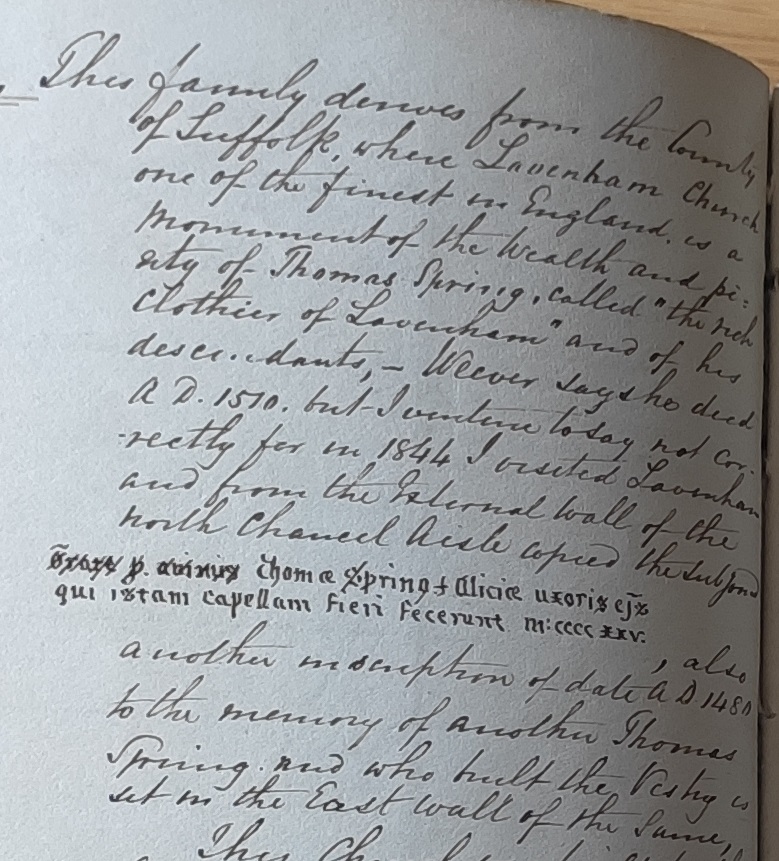 This family derives from the County
of Suffolk, where Lavenham Church
one of the finest in England, is a
Monument of the Wealth and pi=
ety of Thomas Spring, called "the rich
Clothier of Lavenham" and of his
descendants, – Weever says he died
A D. 1510. but I venture to say not cor-
-rectly for in 1844 I visited Lavenham
and from the External Wall of the
North Chancel Aisle copied the subjoind
Thome Spring & Alicie uxoris ejs
qui istam capellam fieri fecerunt m:cccc xxv:
, also
another inscription of date A D 1480
to the memory of another Thomas
Spring and who built the Vestry is
set in the East Wall of the Same,
This